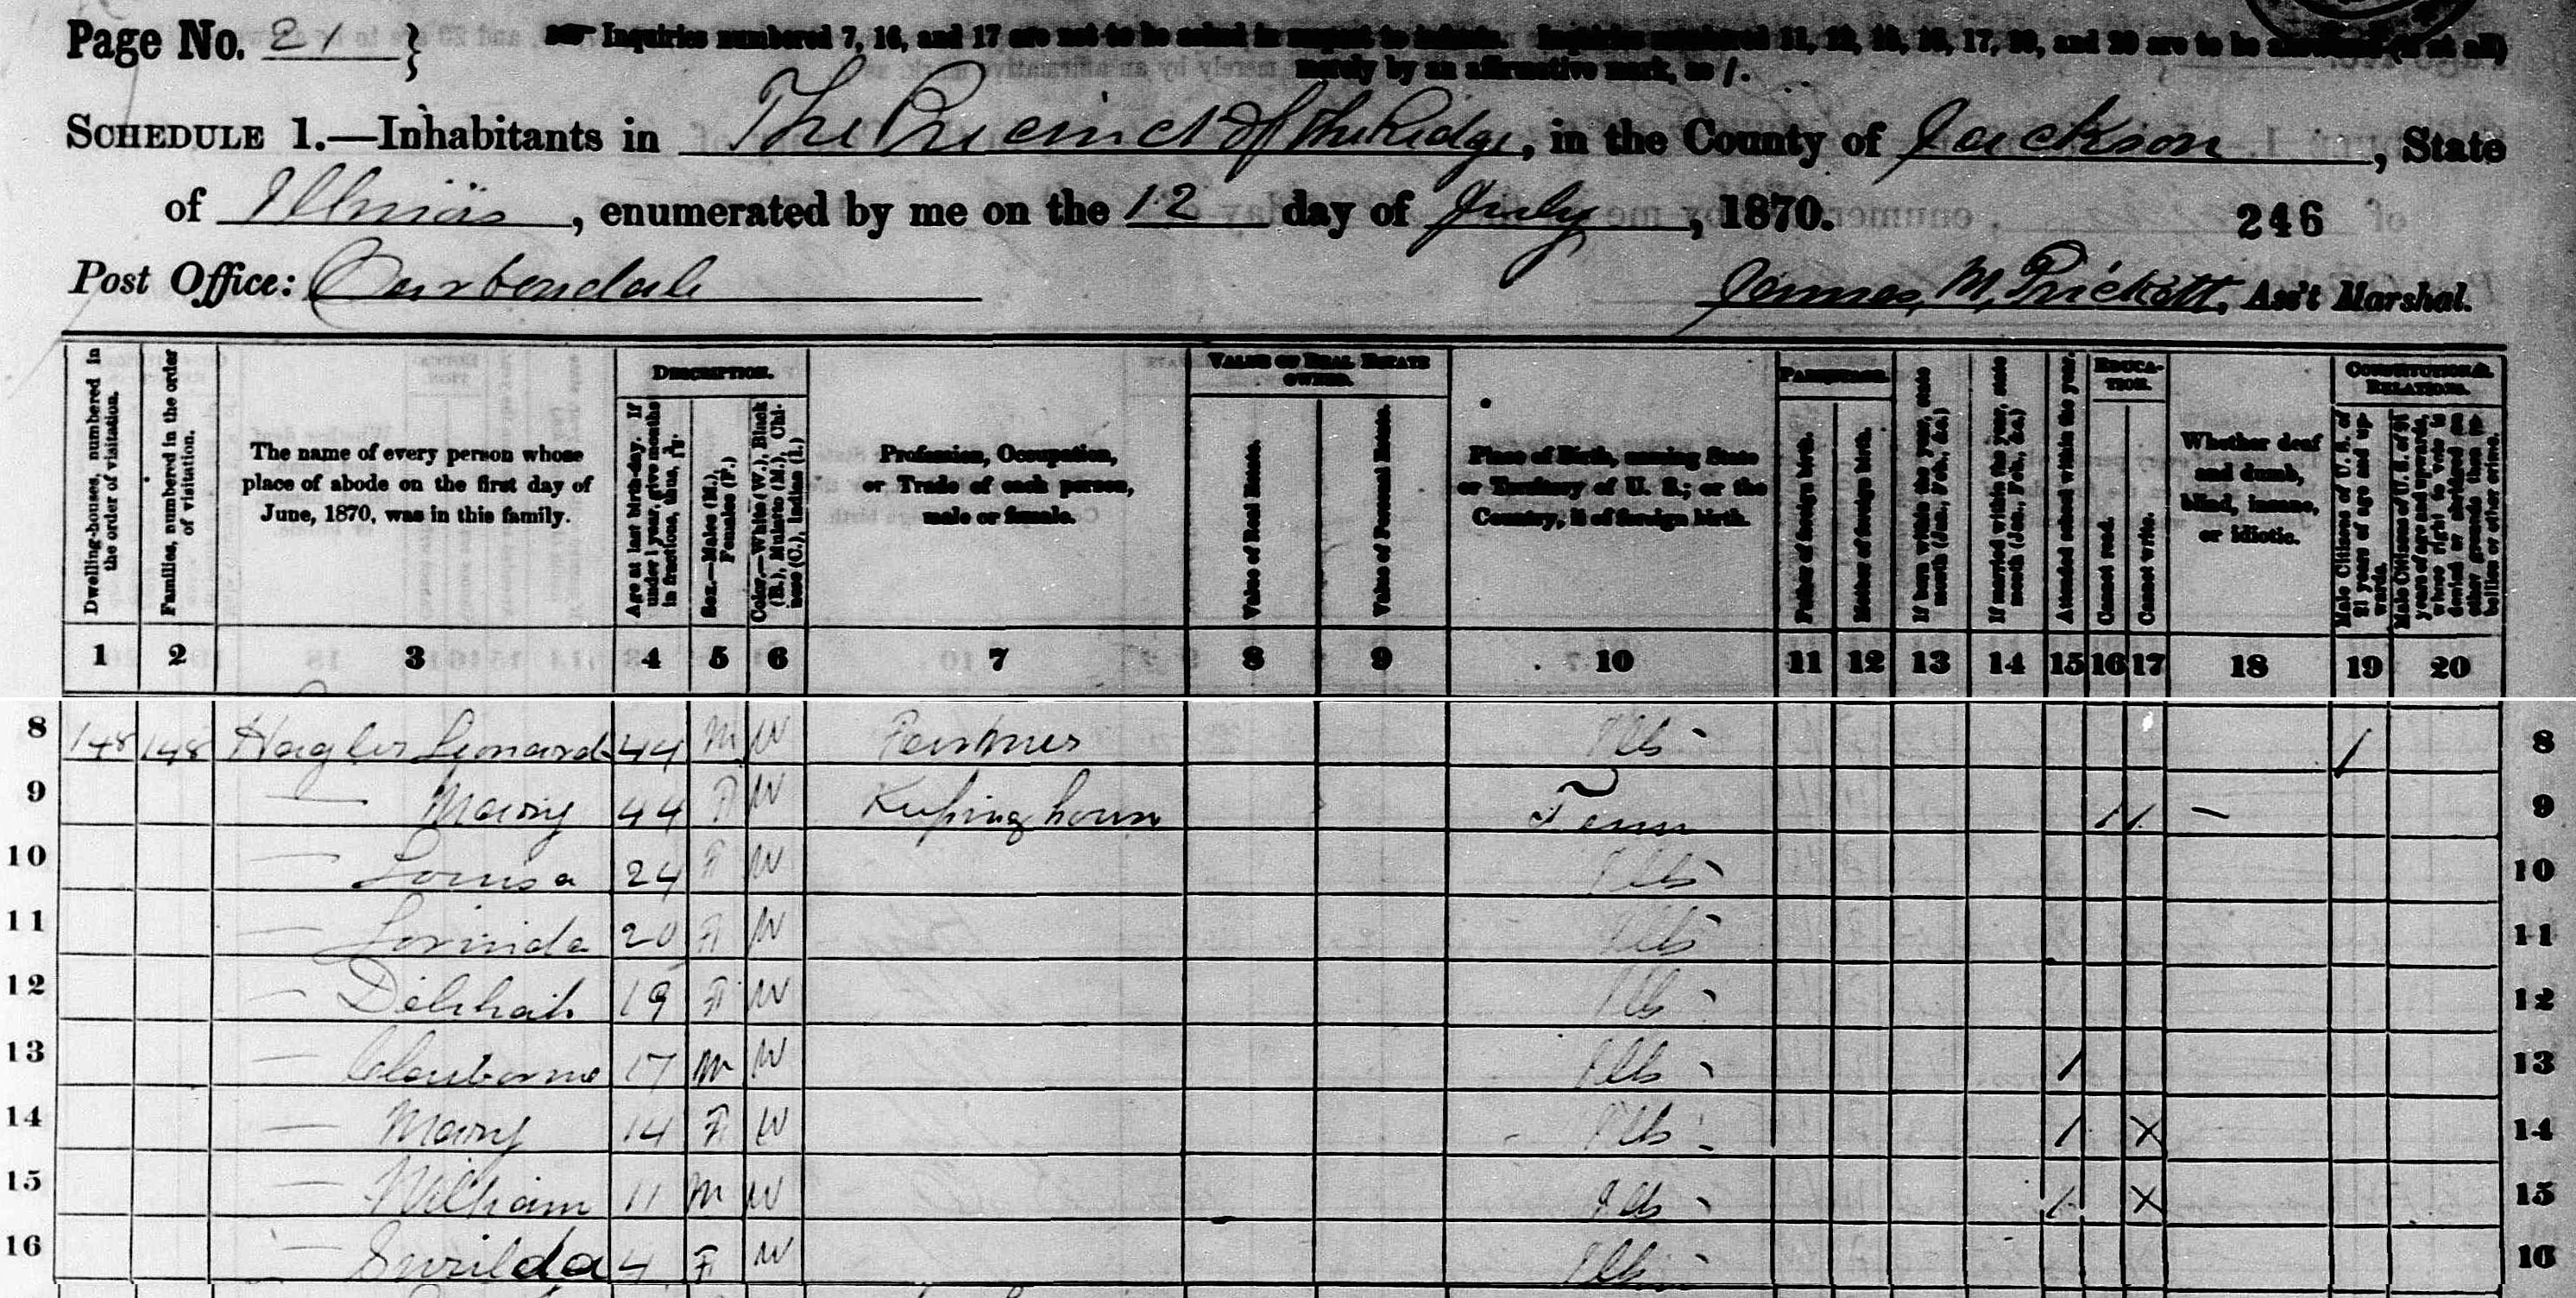 Page No. 21 }
Inquiries numbered 7, 16, and 17 are not to be asked in respect to infants. Inquiries numbered 11, 12, 15, 16, 17, 19, and 20 are to be answered (if at all)
merely by an affirmative mark, as /.
SCHEDULE 1.—Inhabitants in The Precinct of the Ridge, in the County of Jackson, State
of Illinois, enumerated by me on the 12 day of July, 1870. 246
Post Office: Carbondale James M. Prickett, Ass't Marshal.
Dwelling-houses, numbered in the order of visitation.
Families, numbered in the order of visitation.
The name of every person whose place of abode on the first day of June, 1870, was in this family.
DESCRIPTION.
Age at last birth-day. If under 1 year, give months in fractions, thus,
Sex.—Males (M.), Females (F.)
Color.—White (W.), Black (B.), Mulatto (M.), Chinese (C.), Indian (I.)
Profession, Occupation, or Trade of each person, male or female.
VALUE OF REAL ESTATE OWNED.
Value of Real Estate.
Value of Personal Estate.
Place of Birth, naming State or Territory of U. S.; or the Country, if of foreign birth.
PARENTAGE.
Father of foreign birth.
Mother of foreign birth.
If born within the year, state month (Jan., Feb., &c.)
If married within the year, state month (Jan., Feb., &c.)
Attended school within the year.
EDUCATION.
Cannot read.
Cannot write.
Whether deaf and dumb, blind, insane, or idiotic.
CONSTITUTIONAL RELATIONS.
Male Citizens of U. S. of 21 years of age and upwards.
Male Citizens of U. S. of 21 years of age and upwards, whose right to vote is denied or abridged on other grounds than rebellion or other crime.
1 2 3 4 5 6 7 8 9 10 11 12 13 14 15 16 17 18 19 20
8 148 148 Hagler Leonard 44 M W Farmer Ills / 8
9 — Mary 44 F W Keeping house Tenn / / — 9
10 — Louisa 24 F W Ills 10
11 — Lorinda 20 F W Ills 11
12 — Delilah 19 F W Ills 12
13 — Clauborne 17 M W Ills / 13
14 — Mary 14 F W Ills / X 14
15 — William 11 M W Ills / X 15
16 — Surilda 4 F W Ills 16